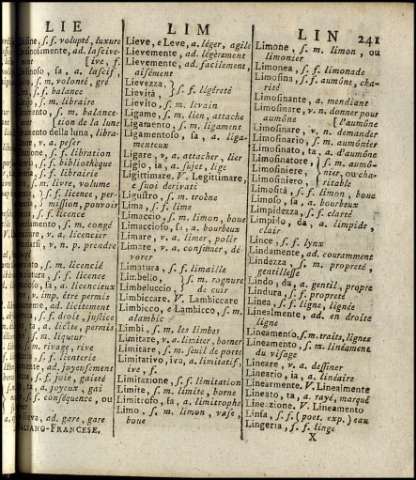 LIE
LIM
LIN
241
volupté, luxure
ad. lascive-
ment
lascif,
balance
s. m. libraire
s. m. balance-
tion de la lune
amento della luna, libra-
v. a. peser
s. f. libration
s. f. bibliothèque
s. f. librairie
s. m. livre, volume
s. f. licence, per-
mission, pouvoir
s. f. licence
s. m. congé
v. a. licencier
v. n. p. prendre
s. m. licencié
s. f. licence
a. licencieux
v. imp. être permis
ad. licitement
s. f. droit, justice
a. licite, permis
s. m. liqueur
s. m. rivage, rive
s. f. lienterie
ad. joyeusement
s. f. joie, gaieté
a. joyeux, gai
s. f. conséquence, ou
ad. gare, gare
ITALIANO-FRANCESE.
Lieve, e Leve, a. léger, agile
Lievemente, ad. légèrement
Lievemente, ad. facilement,
aisément
Lievezza, }
Lievità, } s. f. légèreté
Lievito, s. m. levain
Ligame, s. m. lien, attache
Ligamento, s. m. ligament
Ligamentoso, sa, a. liga-
menteux
Ligare, v. a. attacher, lier
Ligio, ia, a. sujet, lige
Ligittimare, V. Legittimare,
e suoi derivati
Ligustro, s. m. troène
Lima, s. f. lime
Limaccio, s. m. limon, boue
Limaccioso, sa, a. bourbeux
Limare, v. a. limer, polir
Limare, v. a. consumer, dé-
vorer
Limatura, s. f. limaille
Limbello, }
Limbelluccio, } s. m. rognure
de cuir
Limbiccare, V. Lambiccare
Limbicco, e Lambicco, s. m.
alambic
Limbi, s. m. les limbes
Limitare, v. a. limiter, borner
Limitare, s. m. seuil de porte
Limitativo, iva, a. limitatif,
ive, f.
Limitazione, s. f. limitation
Limite, s. m. limite, borne
Limitrofo, fa, a. limitrophe
Limo, s. m. limon, vase,
boue
Limone, s. m. limon, ou
limonier
Limonea, s. f. limonade
Limosina, s. f. aumône, cha-
rité
Limosinante, a. mendiant
Limosinare, v. n. donner pour
aumône (l'aumône
Limosinare, v. n. demander
Limosinario, s. m. aumônier
Limosinato, ta, a. d'aumône
Limosinatore, } s. m. aumô-
Limosiniere, } nier, ou cha-
Limosiniero, } ritable
Limosità, s. f. limon, boue
Limoso, sa, a. bourbeux
Limpidezza, s. f. clarté
Limpido, da, a. limpide,
clair
Lince, s. f. lynx
Lindamente, ad. couramment
Lindezza, s. m. propreté,
gentillesse
Lindo, da, a. gentil, propre
Lindura, s. f. propreté
Linea, s. f. ligne, lignée
Linealmente, ad. en droite
ligne
Lineamento, s. m. traits, lignes
Lineamento, s. m. linéamens
du visage
Lineare, v. a. dessiner
Lineario, ia, a. linéaire
Linearmente. V. Linealmente
Lineato, ta, a. rayé, marqué
Lineazione. V. Lineamento
Linfa, s. f. (poet. exp.) eau
Lingeria, s. f. linge
X